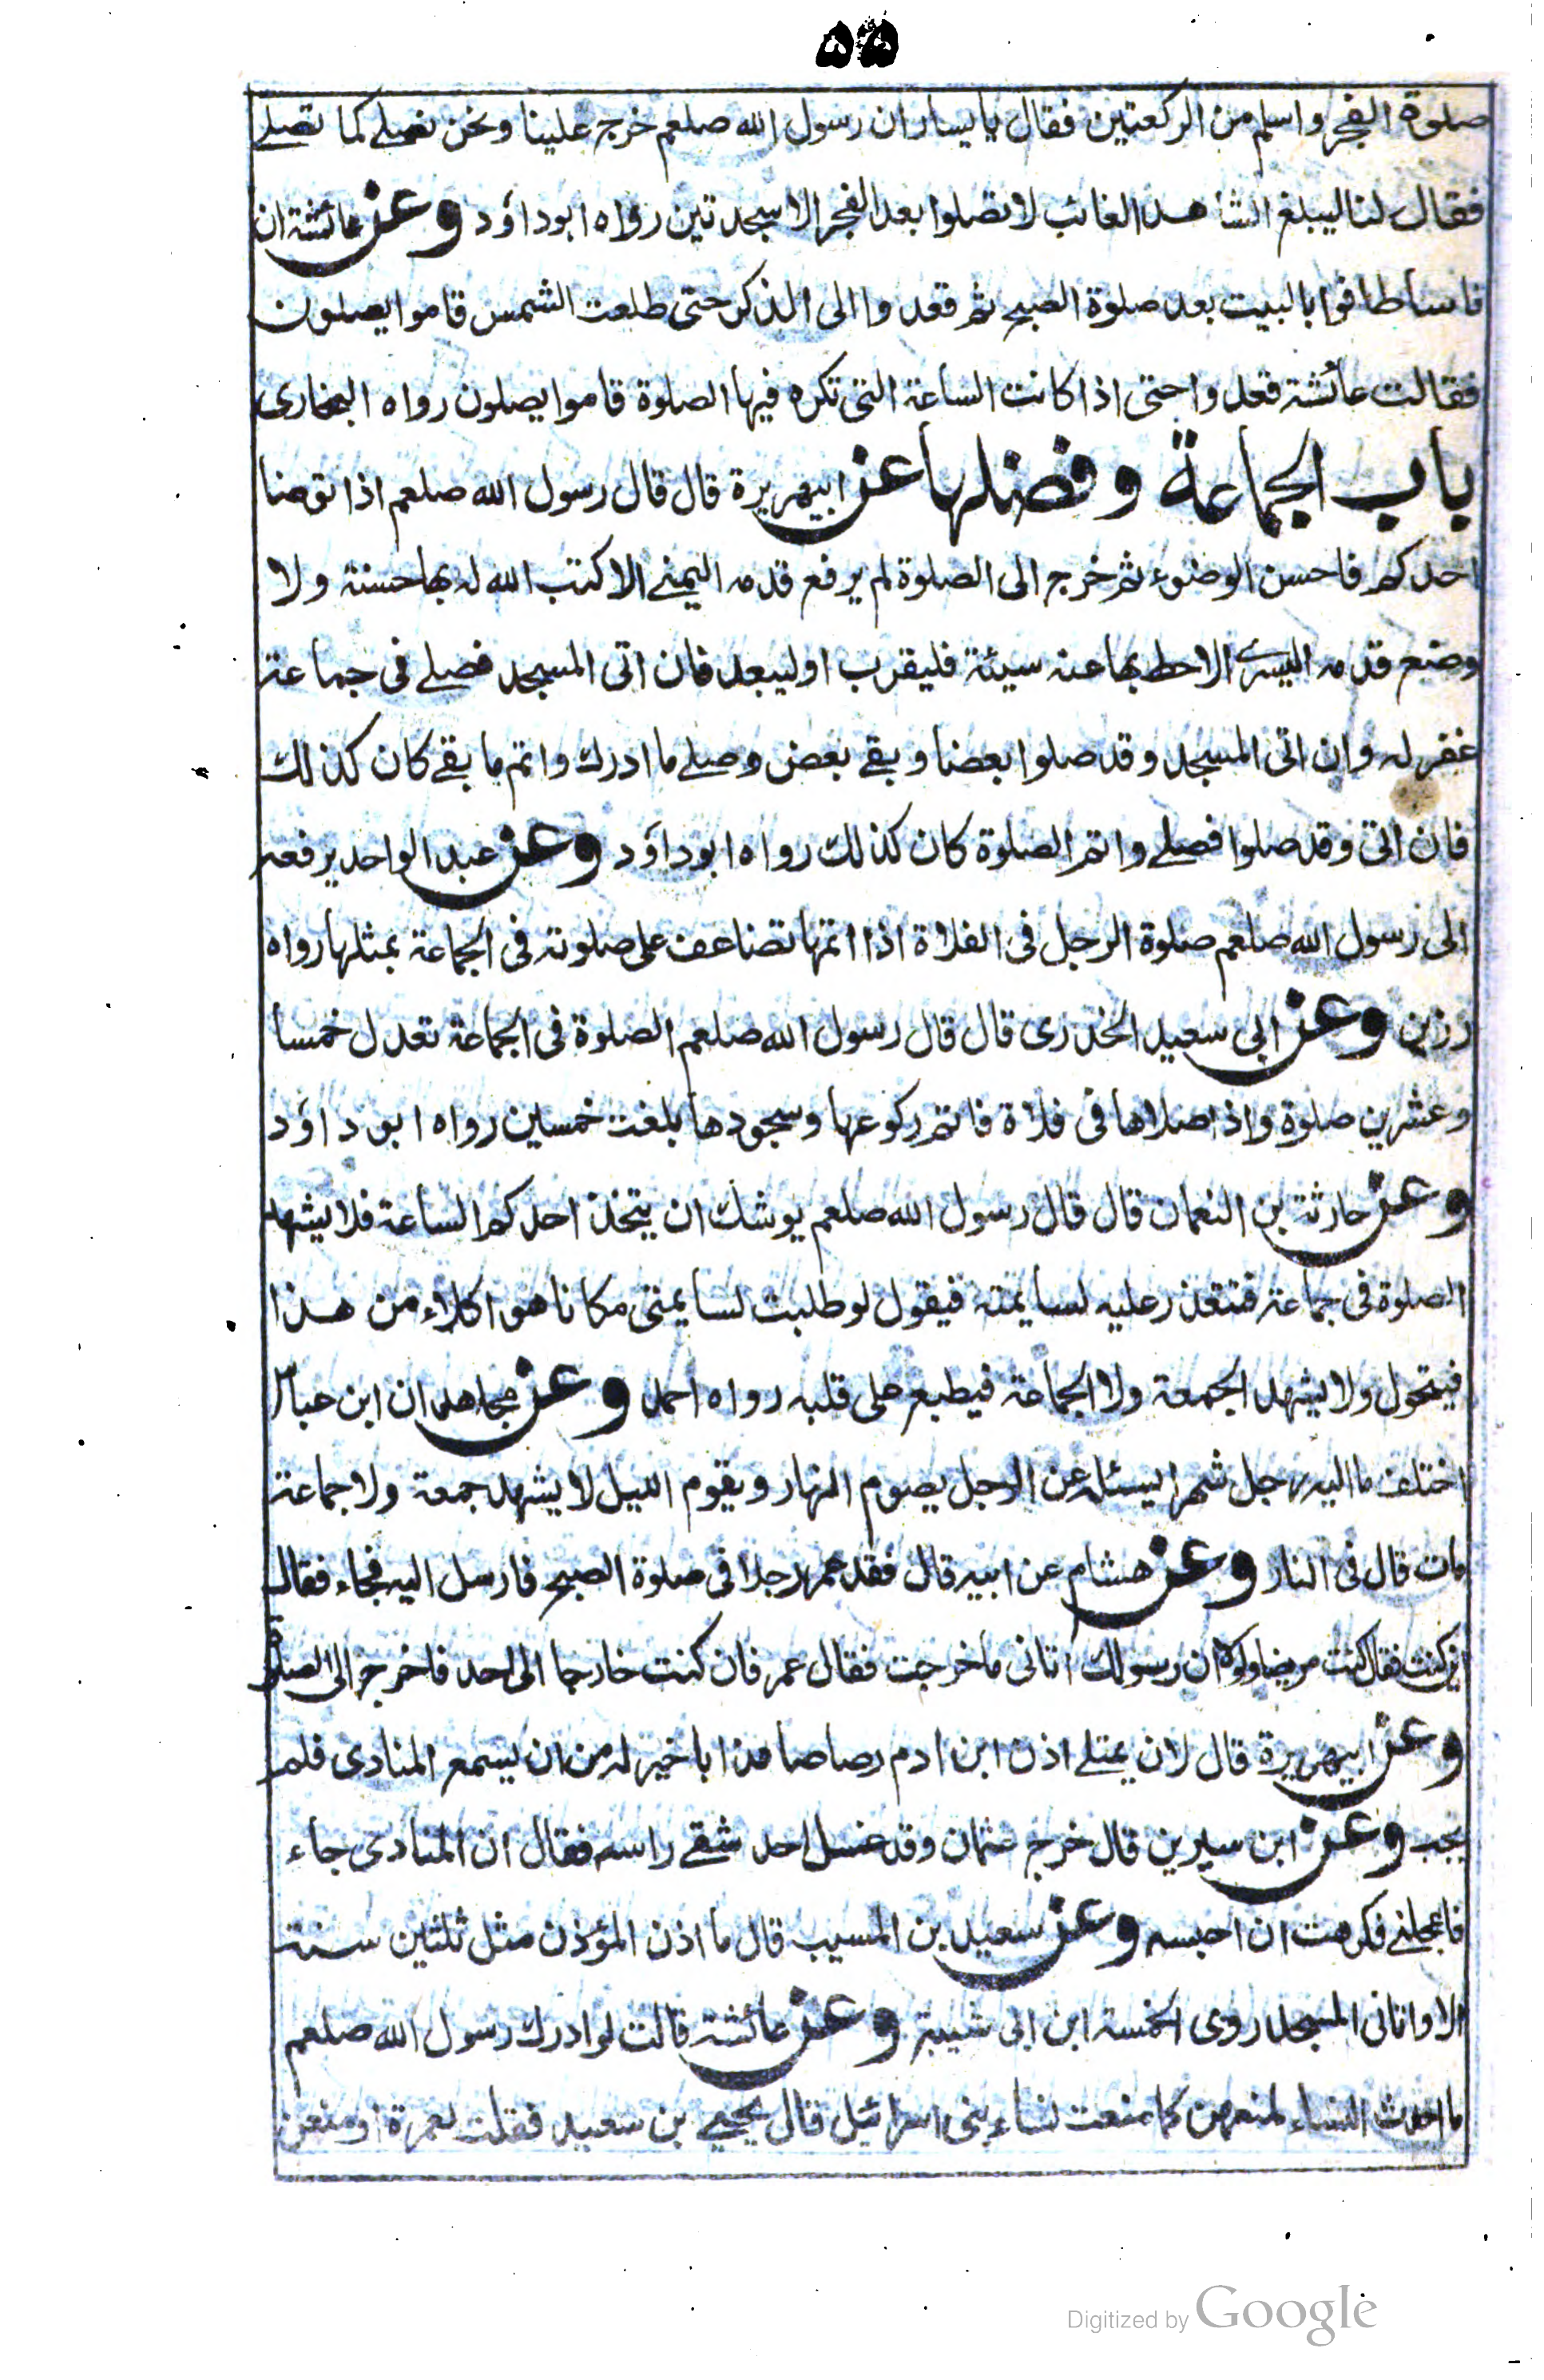 ۵۵
صلوة الفجر واسلم من الركعتين فقال يا يسار ان رسول الله صلعم خرج علينا ونحن نصلے كما تصلے
فقال لنا ليبلغ الشاهد الغائب لا تصلوا بعد الفجر الا سجدتين رواه ابو داؤد وعن عائشة ان
ناسا طافوا بالبيت بعد صلوة الصبح ثم قعدوا الى الذكر حتى طلعت الشمس قاموا يصلون
فقالت عائشة قعدوا حتى اذا كانت الساعة التى تكره فيها الصلوة قاموا يصلون رواه البخارى
باب الجماعة وفضلها عن ابيهريرة قال قال رسول الله صلعم اذا توضا
احدكم فاحسن الوضوء ثم خرج الى الصلوة لم يرفع قدمه اليمنے الا كتب الله له بها حسنة ولا
وضع قدمه اليسرے الا حط بها عنه سيئة فليقرب او ليبعد فان اتى المسجد فصلے فى جماعة
غفر له وان اتى المسجد وقد صلوا بعضا وبقے بعض وصلے ما ادرك واتم ما بقے كان كذلك
فان اتى وقد صلوا فصلے واتم الصلوة كان كذلك رواه ابو داؤد وعن عبد الواحد يرفعه
الى رسول الله صلعم صلوة الرجل فى الفلاة اذا اتمها تضاعف على صلوته فى الجماعة بمثلها رواه
رزين وعن ابى سعيد الخدرى قال قال رسول الله صلعم الصلوة فى الجماعة تعدل خمسا
وعشرين صلوة واذا صلاها فى فلاة فاتم ركوعها وسجودها بلغت خمسين رواه ابو داؤد
وعن حارثة بن النعمان قال قال رسول الله صلعم يوشك ان يتخذ احدكم الساعة فلا يشهد
الصلوة فى جماعة فتتعذر عليه لسايمته فيقول لو طلبت لسايمتى مكانا هو اكلاء من هذا
فيتحول ولا يشهد الجمعة ولا الجماعة فيطبع على قلبه رواه احمد وعن مجاهد ان ابن عباس
اختلف ما اليه رجل شهرا ليسئله عن الرجل يصوم النهار ويقوم الليل لا يشهد جمعة ولا جماعة
مات قال فى النار وعن هشام عن ابيه قال فقد عمر رجلا فى صلوة الصبح فارسل اليه فجاء فقال
اين كنت فقال كنت مريضا ولولا ان رسولك اتانى ما خرجت فقال عمر فان كنت خارجا الى احد فاخرج الى الصلوة
وعن ابيهريرة قال لان يمتلے اذن ابن ادم رصاصا مذابا خير له من ان يسمع المنادى فلم
يجب وعن ابن سيرين قال خرج عثمان وقد غسل احد شقے راسه فقال ان المنادى جاء
فاعجلنے فكرهت ان احبسه وعن سعيد بن المسيب قال ما اذن المؤذن مثل ثلثين سنة
الا وانا فى المسجد روى الخمسة ابن ابى شيبة وعن عائشة قالت لو ادرك رسول الله صلعم
ما احدث النساء لمنعهن كما منعت نساء بنى اسرائيل قال يحيے بن سعيد فقلت لعمرة اومنعن
Digitized by Google